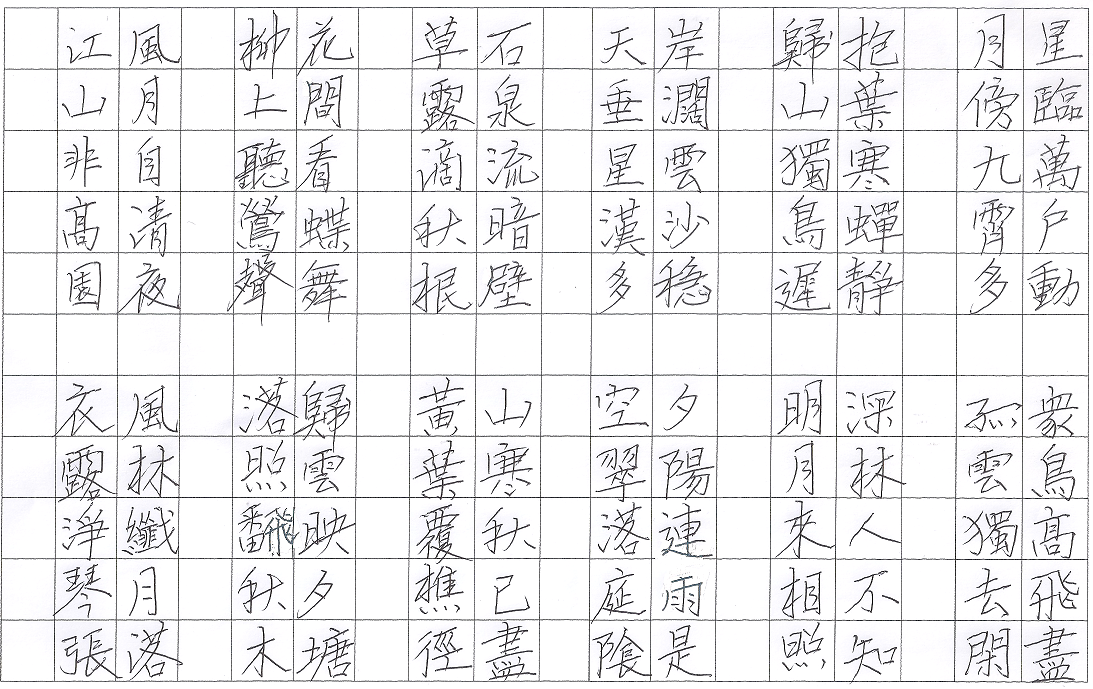 星臨萬戶動
月傍九霄多
抱葉寒蟬靜
歸山獨鳥遲
岸濶雲沙稳
天垂星漢多
石泉流暗壁
草露滴秋根
花間看蝶舞
柳上聽鶯聲
風月自清夜
江山非髙園
衆鳥髙飛盡
孤雲獨去閑
深林人不知
明月來相照
夕陽連雨是
空翠落庭陰
山寒秋已盡
黃葉覆樵徑
歸雲映夕塘
落照飜秋木
風林纖月落
衣露淨琴張